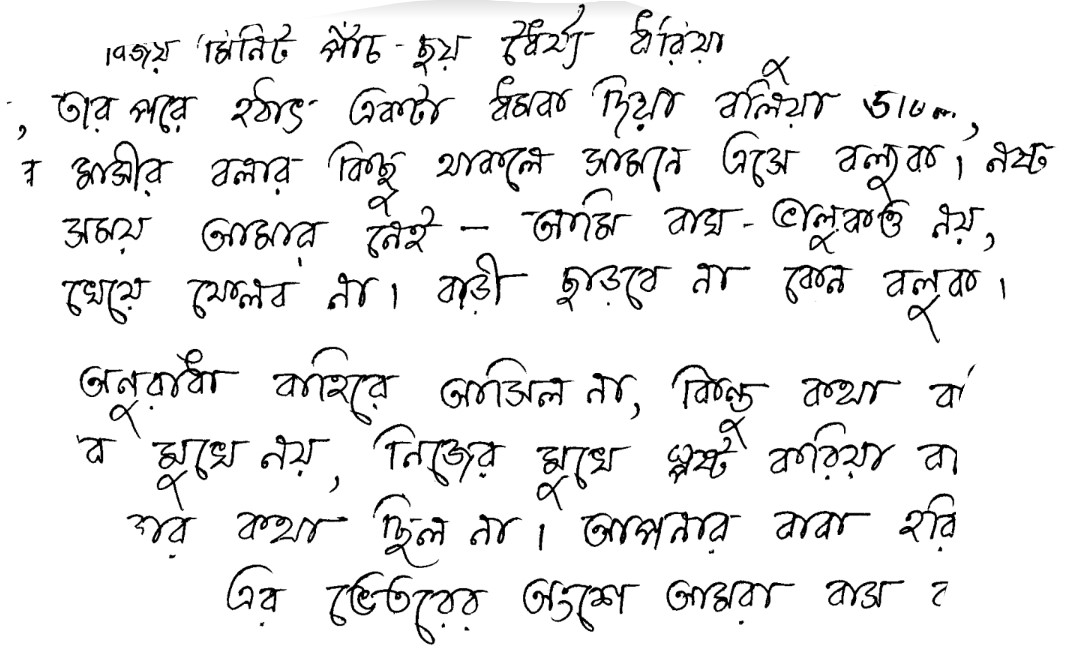 বিজয় মিনিট পাঁচ-ছয় ধৈর্য্য ধরিয়া
, তার পরে হঠাৎ একটা ধমক দিয়া বলিয়া
মাসীর বলার কিছু থাকলে সামনে এসে বলুক। নষ্ট
সময় আমার নেই – আমি বাঘ-ভালুকও নয়,
খেয়ে ফেলব না। বাড়ী ছাড়বে না কেন বলুক।
অনুরাধা বাহিরে আসিল না, কিন্তু কথা
মুখে নয়, নিজের মুখে স্পষ্ট করিয়া
কথা ছিল না। আপনার বাবা হরি
এর ভেতরের অংশে আমরা বাস